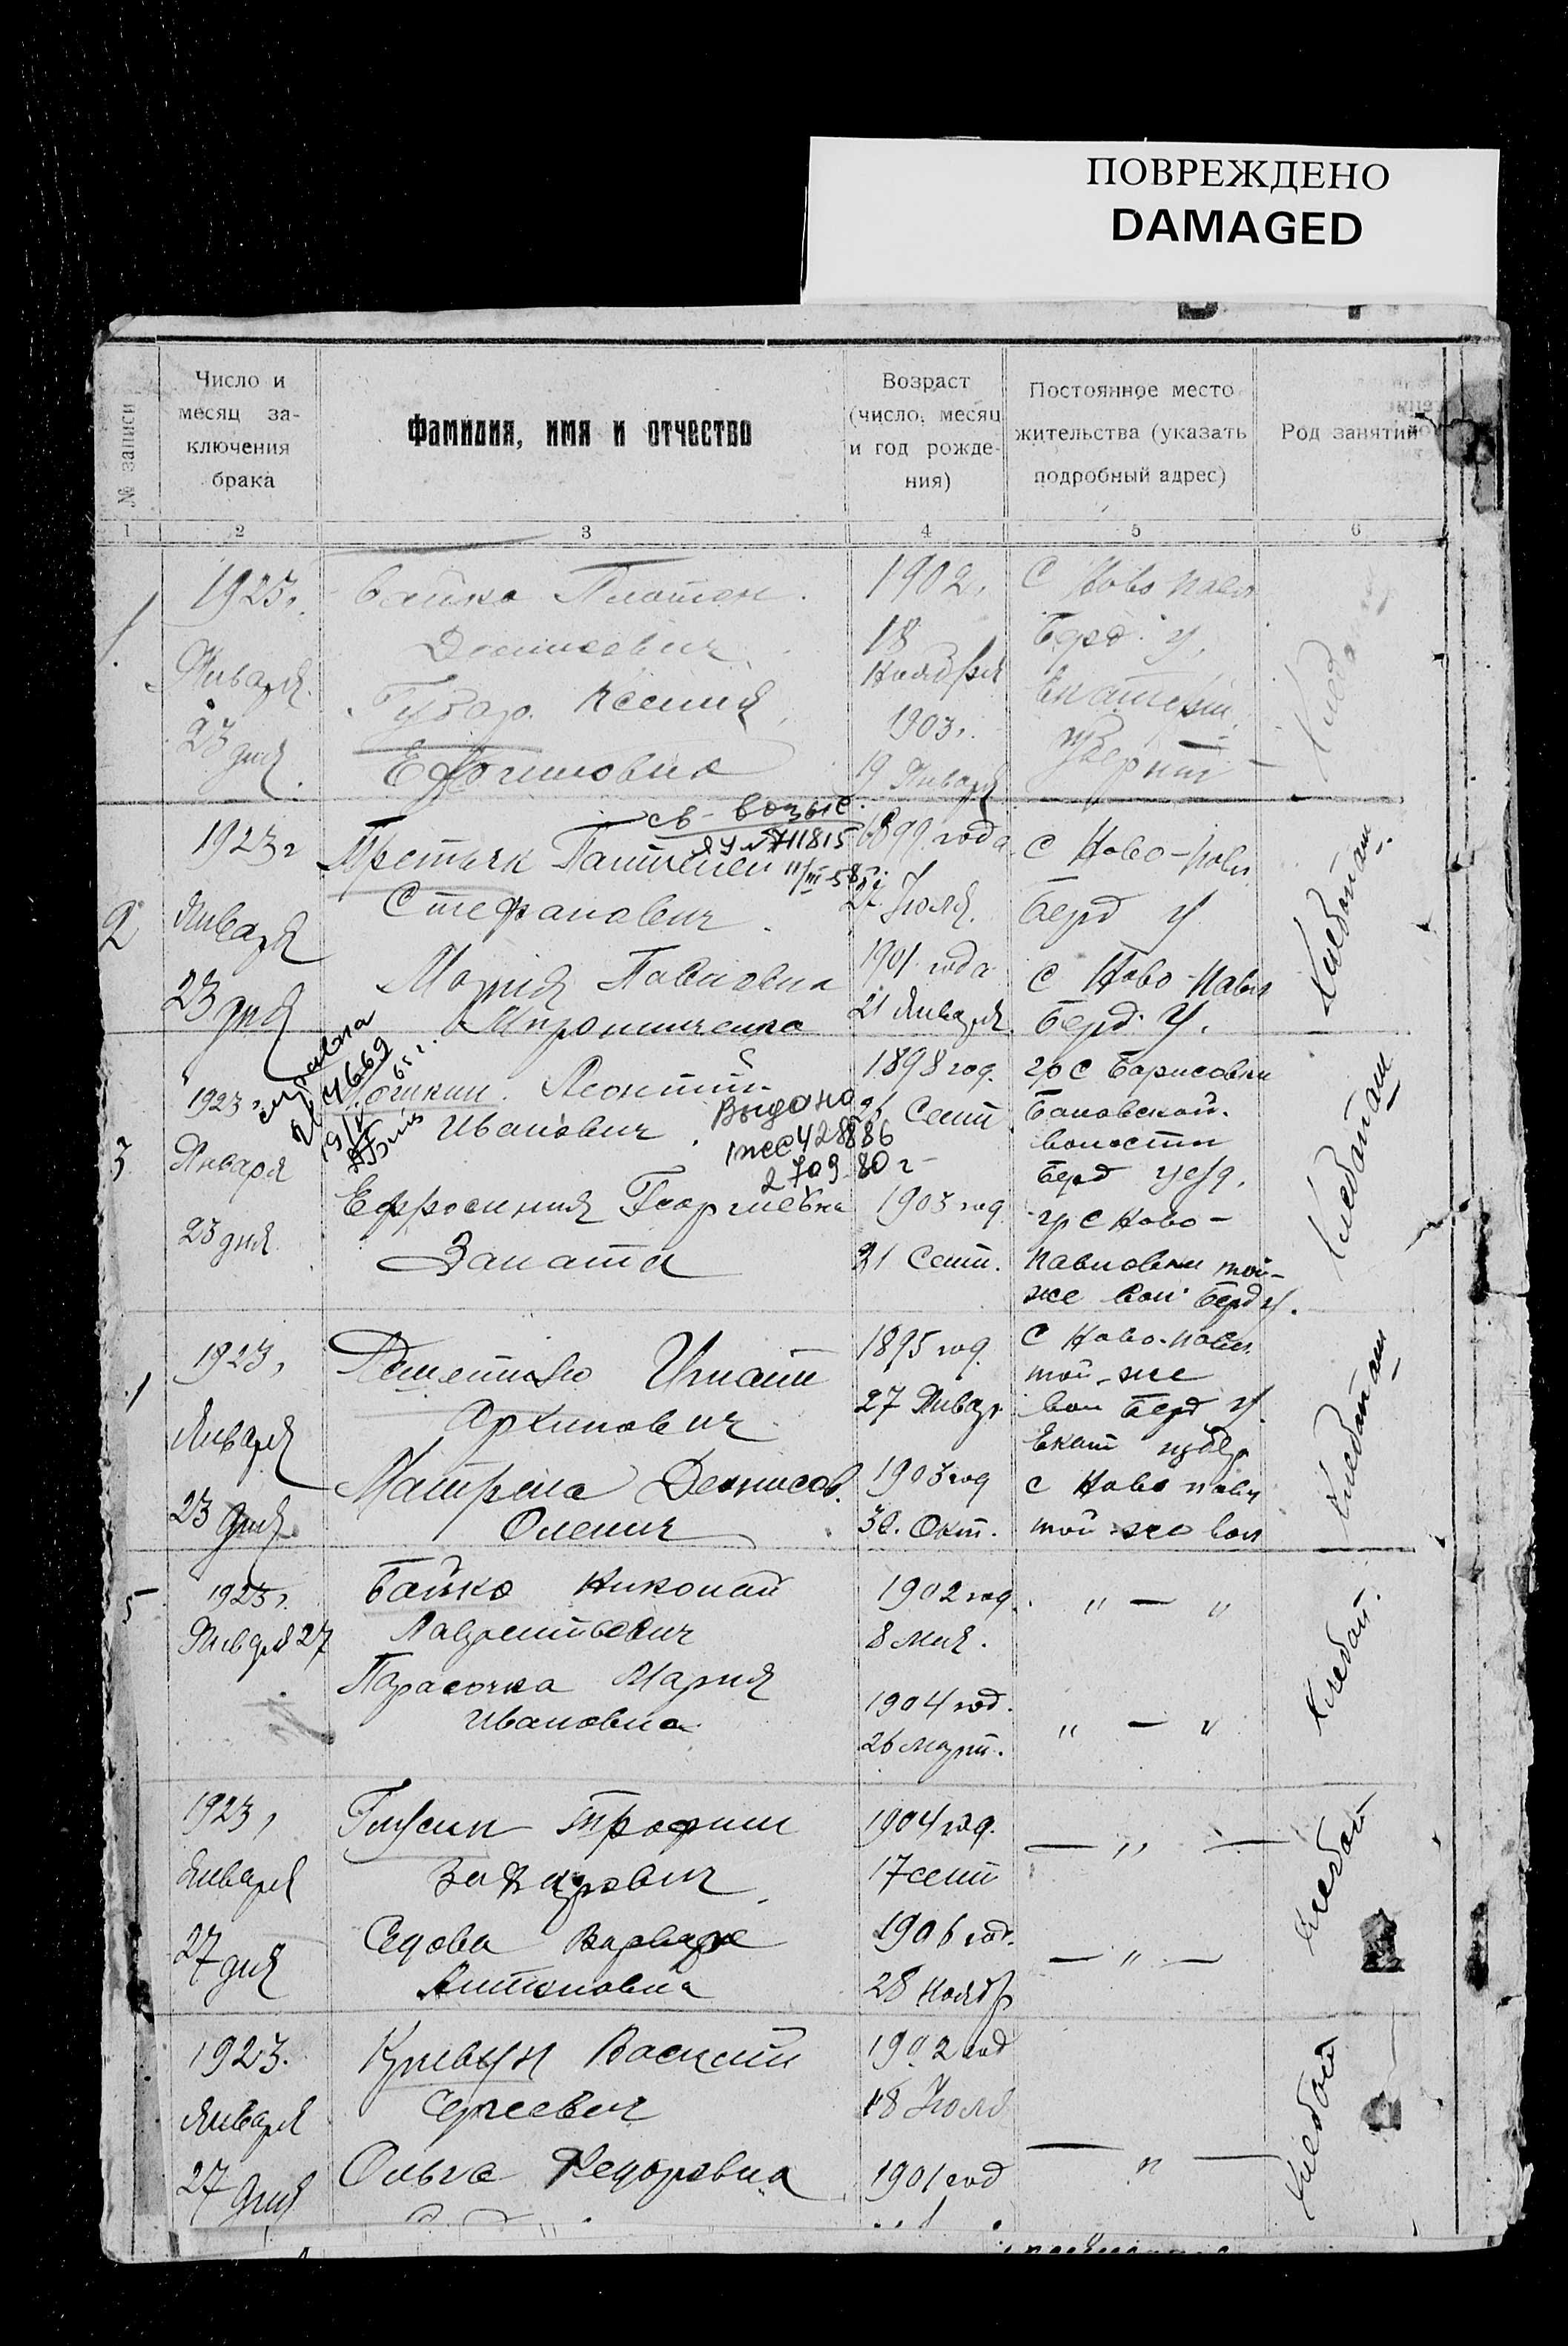 ПОВРЕЖДЕНО
DAMAGED
№ записи
Число и
месяц за-
ключения
брака
Фамилия, имя и отчество
Возраст
(число, месяц
и год рожде-
ния)
Постоянное место
жительства (указать
подробный адрес)
Род занятий
1
2
3
4
5
6
1
1923г.
Января
23 дня
Байко Платон
Денисович
Губар Ксения
Ефимовна
1902.
18
Ноября
1903.
19 Января
С Ново павл
Берд. у.
Екатерин.
губернии
2
1923г
Января
23 дня
св-
№ 11815
11/III-58г
Третьяк
Стефанович
Мария Павловна
Мирониченко
1899 года
27 Июля.
1901 года
21 Января
С Ново-павл.
Берд у
С Ново-павл
Берд. У.
Хлебопаш.
3
1923г.
Января
23 дня
справка
4669
65 г.
Леонтий
Иванович
Выдано
428886
2709.80г
Ефросиния Георгиевна
1898 год.
26 Сент
1903 год
21 Сент.
гр с Борисовки
волости
Берд уезд.
гр с Ново-
павловки той-
же вол. Берд у.
Хлебопаш
1
1923г
Января
23 дня
Игнат
Архипович
Матрена Денисов.
Оленич
1895 год.
27 Январ
1903 год
30. Окт.
С Ново-павл.
той-же
вол Берд у.
Екат губер
с Ново павл
той же вол
Хлебопаш
5
1923г.
Января 27
Байко Николай
Лаврентьевич
Парасочка Мария
Ивановна
1902 год.
8 Мая.
1904 год.
26 март.
" — "
" — "
Хлебоп.
1923г
Января
27 дня
Трофим
Захарович
Седова Варвара
Антоновна
1904 год.
17 сент
1906 год.
28 Ноябр
— " —
— " —
Хлебоп
1923.
Января
27 дня
Кривун Василий
Сергеевич
Ольга Федоровна
1902 год
18 Июля
1901 год
— " —
Хлебоп